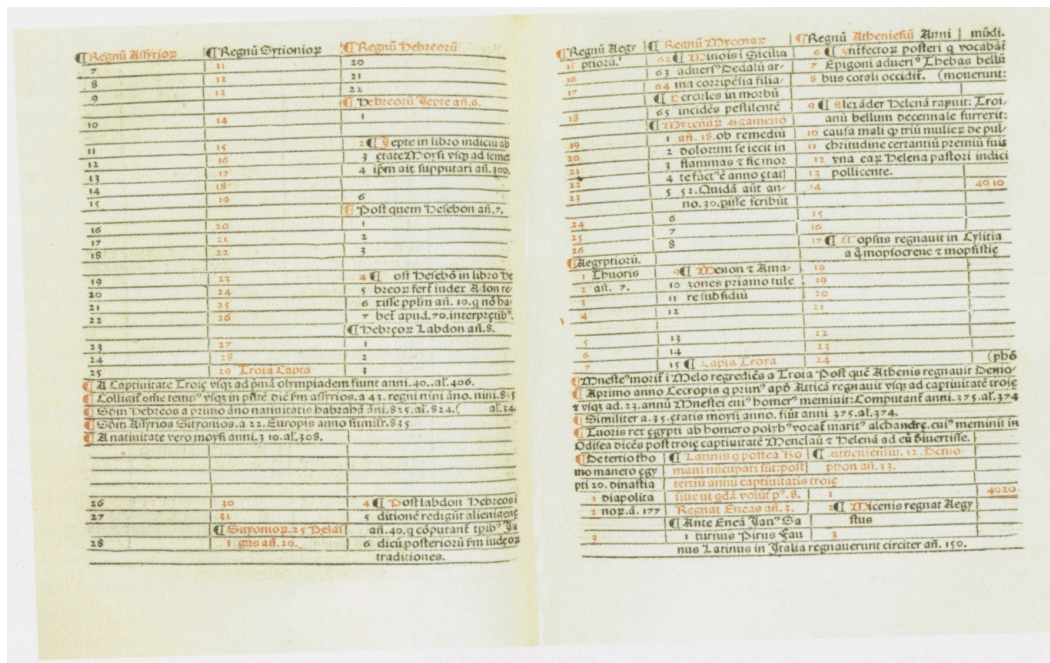 Regnū Assyrioꝝ Regnū Sytionioꝝ Regnū Hebreorū
7 11 20
8 12 21
9 13 22
Hebreorū Jepte añ. 6.
10 14 1
11 15 2 Jepte in libro indiciu ab
12 16 3 etate Moysi vsqꝫ ad semet
13 17 4 ipm ait supputari añ. 300.
14 18
15 19 6
Post quem Hesebon añ. 7.
16 20 1
17 21 2
18 22 3
19 23 4 ost Hesebō in libro He
20 24 5 breoꝝ fert iudex Adon re
21 25 6 xisse pplm añ. 10. q nō ha-
22 26 7 bet apud. 70. interpretibꝰ.
Hebreoꝝ Labdon añ. 8.
23 27 1
24 28 2
25 29 Troia Capta 3
A Captiuitate Troie vsqꝫ ad pmā olympiadem fiunt anni. 40.. al. 406.
Colligit oīse tempꝰ vsqꝫ in pstē diē fm assyrios. a 43. regni nini āno. nini. 815
Sdm Hebreos a primo āno natiuitatis habrahā āni. 825. al. 824. al. 34
Sdm Assyrios Sityomios. a 22. Europis anno similr. 835
A natiuitate vero moysi anni. 3 10. al. 308.
26 30 4 Post labdon Hebreos i
27 31 5 ditionē redigūt alienigene
Sityonioꝝ. 25 Pelas añ. 40. q cōputant tpibꝰ Ju
28 1 gus añ. 20. 6 dicū posterioꝝ fm iudeoꝝ
traditiones.
Regnū Aegy Regnū Mycenaꝝ Regnū Atheniensiū Anni mūdi.
ptiorū. 62 Minois i Sicilia 6 Infectoꝝ posteri q vocabāt
16 63 aduersꝰ Dedalū ar- 7 Epigoni aduersꝰ Thebas bellū
17 64 ma corripēsia filia- 8 bus corali occidit. (mouerunt:
Hercules in morbū
18 65 incidēs pestilente 9 Alexāder Helenā rapuit: Troi-
Mycenaꝝ Agameno anū bellum decennale surrexit:
19 1 an. 18. ob remediū 10 causa mali q triū mulieꝝ de pul-
20 2 dolorum se iecit in 11 chritudine certantiū premiū fuis
21 3 flammas τ sic mor 12 vna eaꝝ Helena pastori indici
22 4 te fūctꝰ ē anno etati 13 pollicente.
23 5 52. Quidā aūt an- 14 4010
no. 30. pisse scribūt
24 6 15
25 7 16
26 8 17 Mopsus regnauit in Cylitia
Aegyptiorū. a q̄ mopsocrene τ mopsistie
1 Thuoris 9 Menon τ Ama- 18
2 añ. 7. 10 zones priamo tule 19
11 re subsidiū 20
4 12 21
5 13 22
6 14
7 15 Capta Troya 24 (phō
Mnestꝰ morit i Melo regrediēs a Troia Post quē Athenis regnauit Demo
A primo anno Cecropis q primꝰ apd Atticā regnauit vsqꝫ ad captiuitatē troie
τ vsqꝫ ad. 23. annū Mnestei cuiꝰ homerꝰ meminit: Computant anni. 375. al. 374
Similiter a. 35. etatis moysi anno. fiūt anni 375. al. 374.
Tuoris rex egypti ab homero polybꝰ vocat maritꝰ alchandre. cuiꝰ meminit in
Odisea dicēs post troie captiuitatē Menelaū τ Helenā ad eū diuertisse.
De tertio tho Latinis q postea Ro Atheniensiū. 12. Demo-
mo maneto egy mani nūcupati sūt: post phon an. 33.
pti 20. dinastia tertiū annū captiuitatis troie
1 diapolita siue ut qdā volūt pꝰ. 8. 1 4020
2 noꝝ. ā. 177 Regnat Eneas añ. 3. 2 Micenis regnat Aegy
Ante Eneā Janꝰ Sa stus
3 1 turnus Pirus Fau 3
nus Latinus in Italia regnauerunt circiter añ. 150.